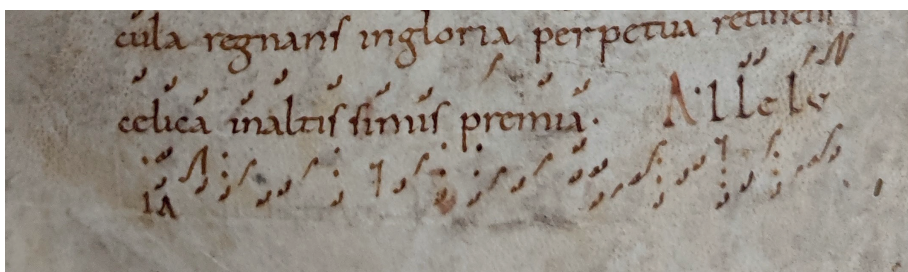 cula regnans ingloria perpetua retinens
celica inaltis simis premia. Allelu
ia